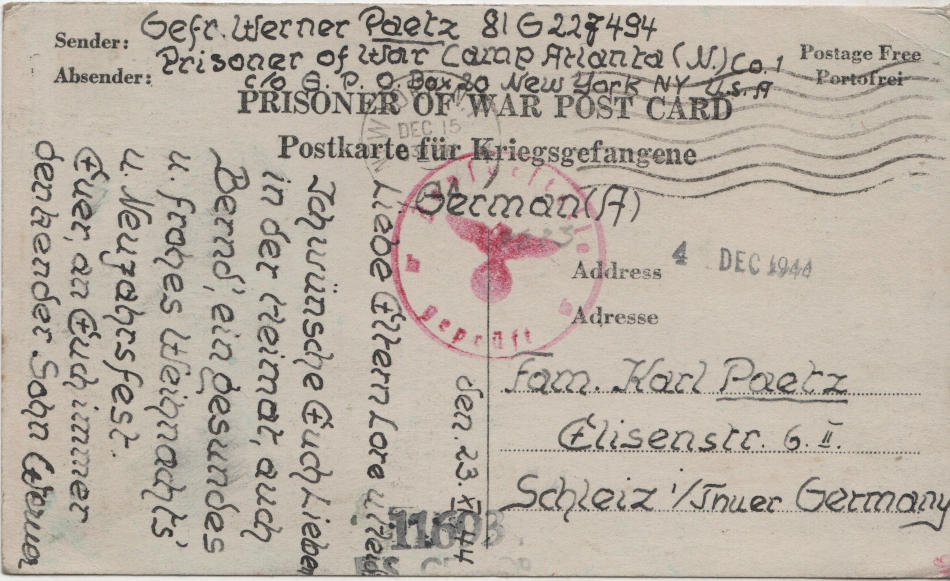 Sender: Gefr. Werner Paetz 81 G 227494
Absender: Prisoner of War Camp Atlanta (N.) Co. 1
c/o G. P. O. Box 20 New York NY U.S.A
Postage Free
Portofrei
PRISONER OF WAR POST CARD
Postkarte für Kriegsgefangene
DEC 15
German (A)
geprüft
Address
4 DEC 1944
Adresse
Fam. Karl Paetz
Elisenstr. 6 II.
Schleiz /Thuer Germany
11603
den. 23. XI. 44
Liebe Eltern Lore u.
Ich wünsche Euch Lieben
in der Heimat, auch
Bernd, ein gesundes
u. frohes Weihnachts
u. Neujahrsfest.
Euer, an Euch immer
denkender Sohn Werner